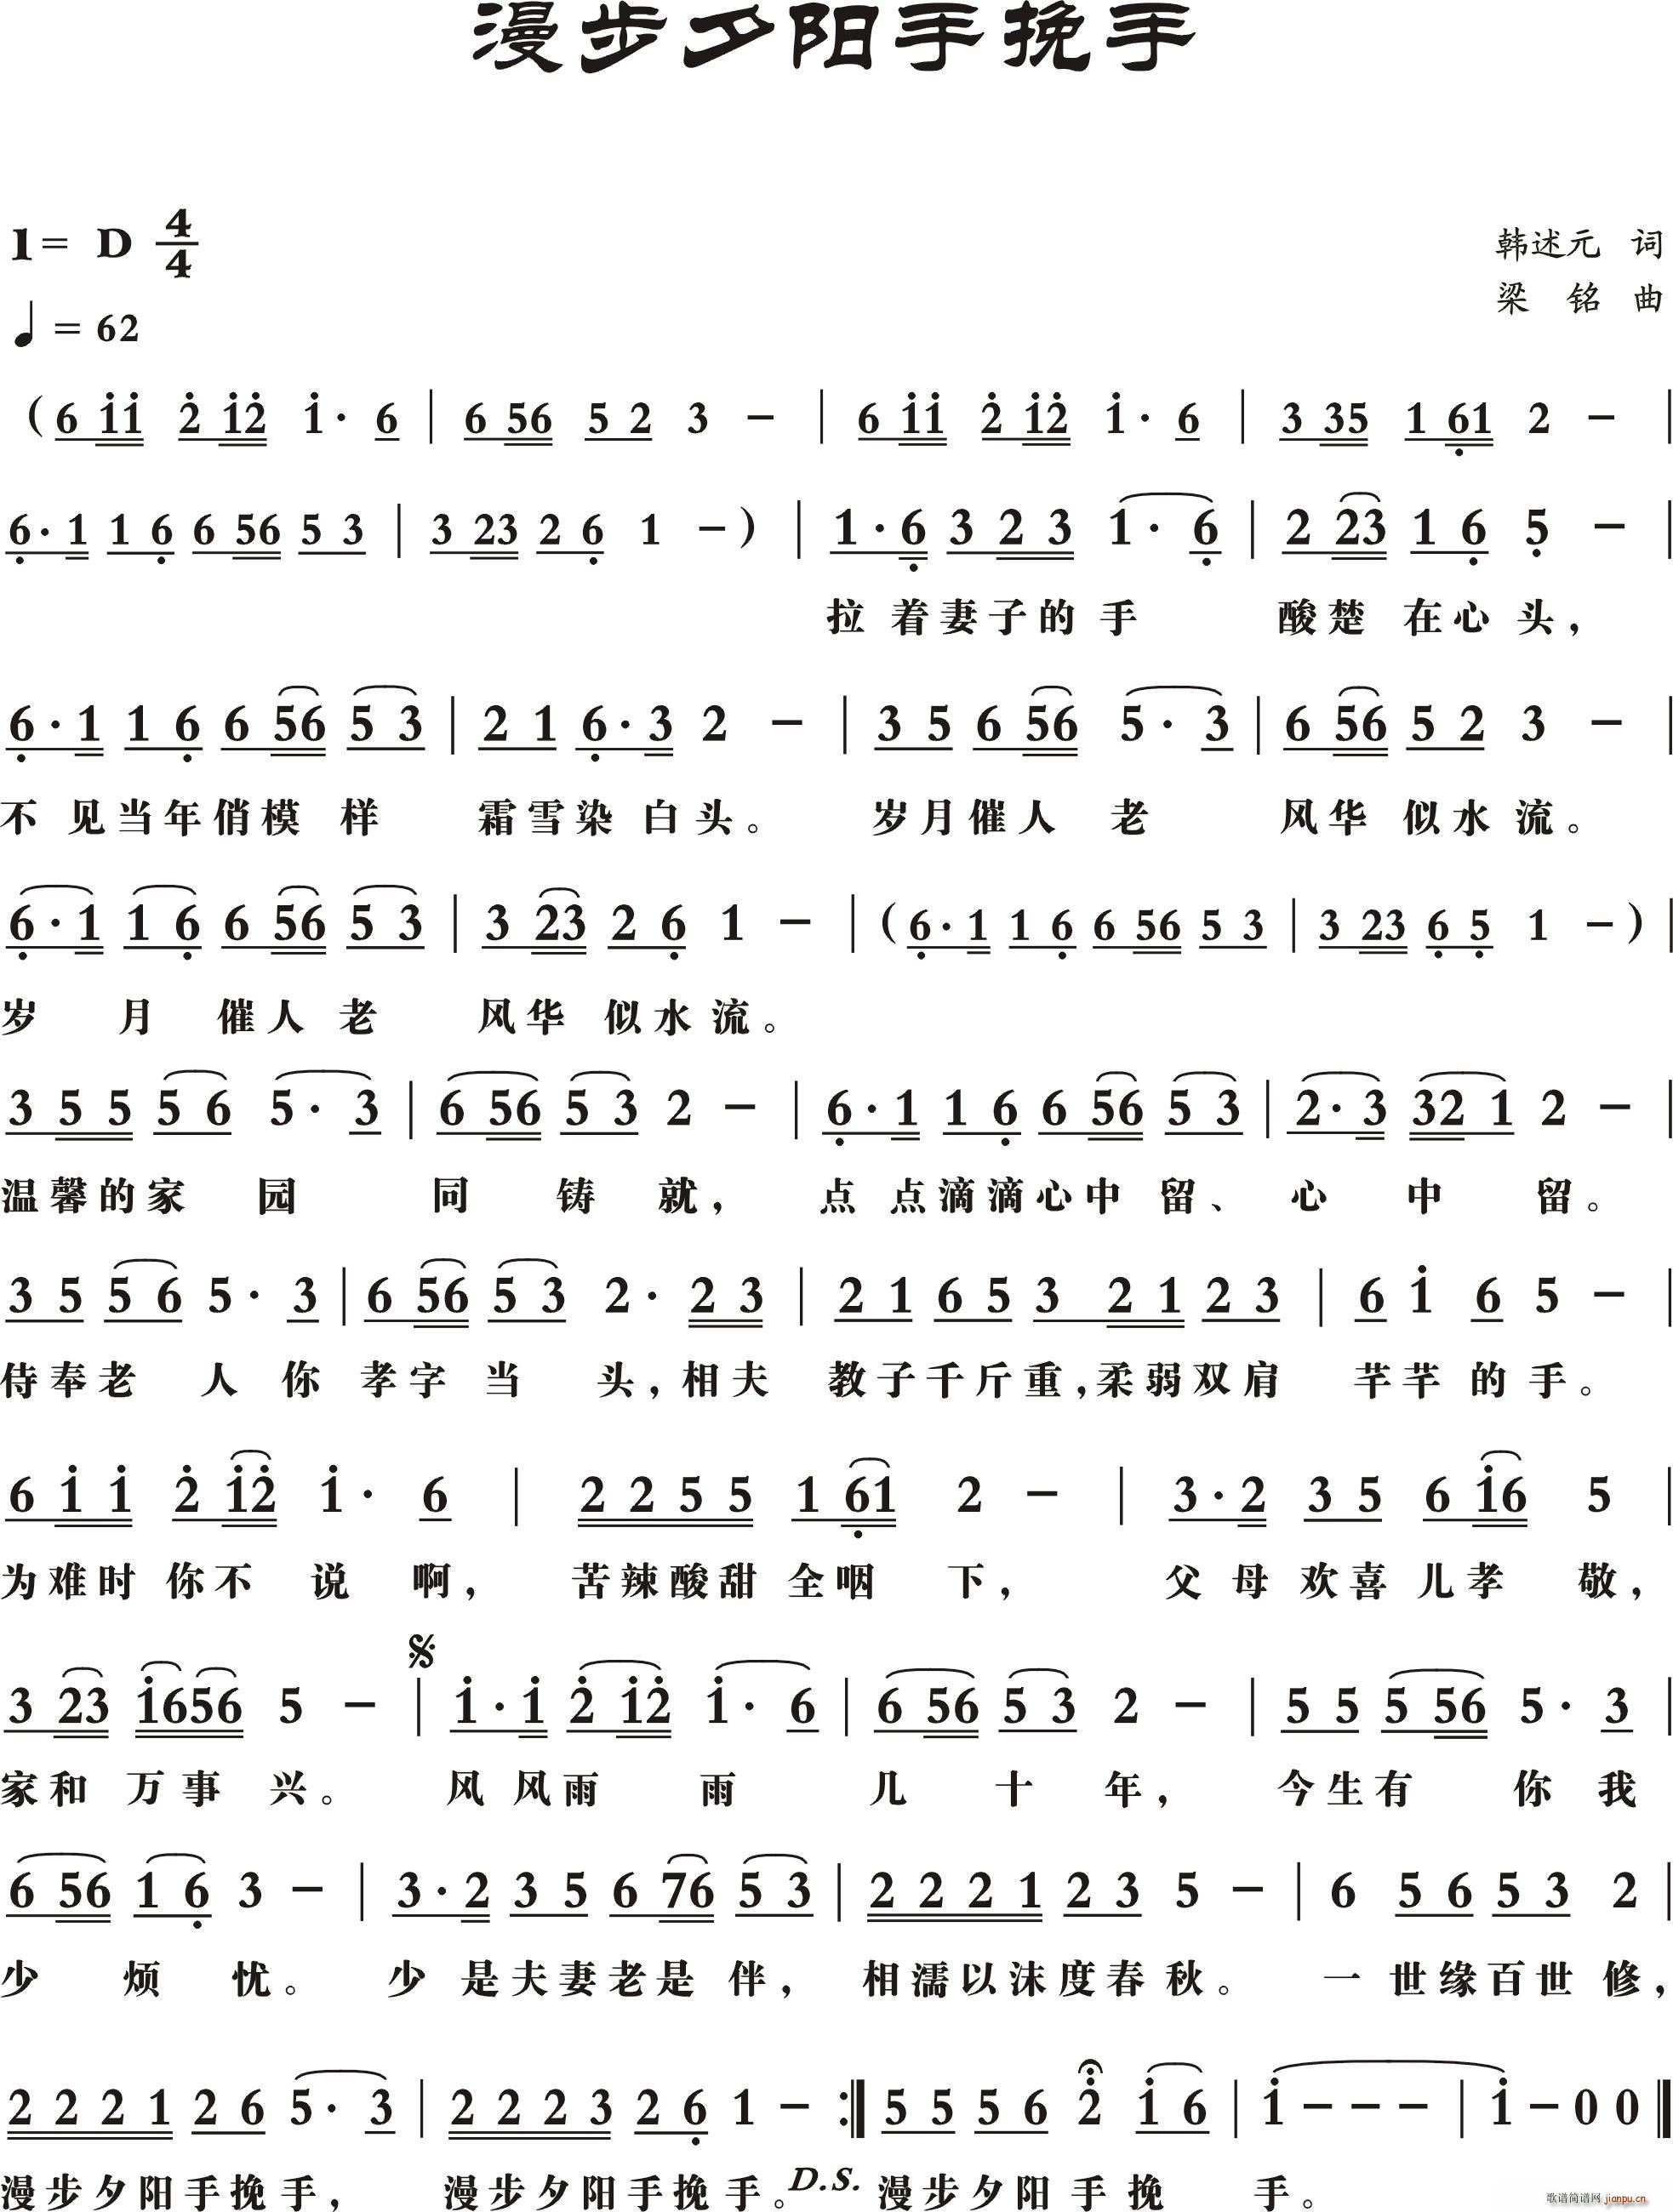 漫步夕阳手挽手
1= D 4/4
韩述元 词
♩= 62
梁 铭 曲
( 6 i i 2̇ i 2̇ i· 6 | 6 5 6 5 2 3 – | 6 i i 2̇ i 2̇ i· 6 | 3 3 5 1 6̣ 1 2 – |
6̣· 1 1 6̣ 6 5 6 5 3 | 3 2 3 2 6̣ 1 – ) | 1· 6̣ 3 2 3 1· 6̣ | 2 2 3 1 6̣ 5̣ – |
拉 着妻子的 手 酸楚 在心 头，
6̣· 1 1 6̣ 6 5 6 5 3 | 2 1 6̣· 3 2 – | 3 5 6 5 6 5· 3 | 6 5 6 5 2 3 – |
不 见当年俏模 样 霜雪染 白头。 岁月催人 老 风华 似水流。
6̣· 1 1 6̣ 6 5 6 5 3 | 3 2 3 2 6̣ 1 – | ( 6̣· 1 1 6̣ 6 5 6 5 3 | 3 2 3 6̣ 5̣ 1 – ) |
岁 月 催人 老 风华 似水流。
3 5 5 5 6 5· 3 | 6 5 6 5 3 2 – | 6̣· 1 1 6̣ 6 5 6 5 3 | 2· 3 3 2 1 2 – |
温馨的家 园 同 铸 就， 点 点滴滴心中 留、 心 中 留。
3 5 5 6 5· 3 | 6 5 6 5 3 2· 2 3 | 2 1 6 5 3 2 1 2 3 | 6 i 6 5 – |
侍奉老 人 你 孝字 当 头，相夫 教子千斤重，柔弱双肩 芊芊 的手。
6 i i 2̇ i 2̇ i· 6 | 2 2 5 5 1 6̣ 1 2 – | 3· 2 3 5 6 i 6 5 |
为难时 你不 说 啊， 苦辣酸甜 全咽 下， 父 母 欢喜 儿孝 敬，
3 2 3 i 6 5 6 5 – | 𝄋 i· i 2̇ i 2̇ i· 6 | 6 5 6 5 3 2 – | 5 5 5 5 6 5· 3 |
家和 万事 兴。 风 风雨 雨 几 十 年， 今生有 你 我
6 5 6 1 6̣ 3 – | 3· 2 3 5 6 7 6 5 3 | 2 2 2 1 2 3 5 – | 6 5 6 5 3 2 |
少 烦 忧。 少 是夫妻老是 伴， 相濡以沫度春秋。 一 世缘百世 修，
2 2 2 1 2 6 5· 3 | 2 2 2 3 2 6̣ 1 – :‖ 5 5 5 6 2̇ i 6 | i – – – | i – 0 0 ‖
漫步夕阳手挽手， 漫步夕阳手挽手。 D.S. 漫步夕阳 手 挽 手。
歌谱简谱网 jianpu.cn